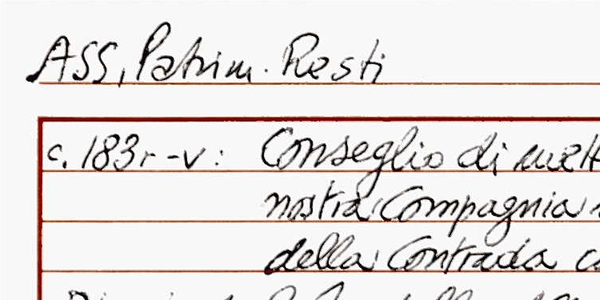 ASS, Patrim. Resti
c. 183r-v: Conseglio di
nostra Compagnia
della Contrada